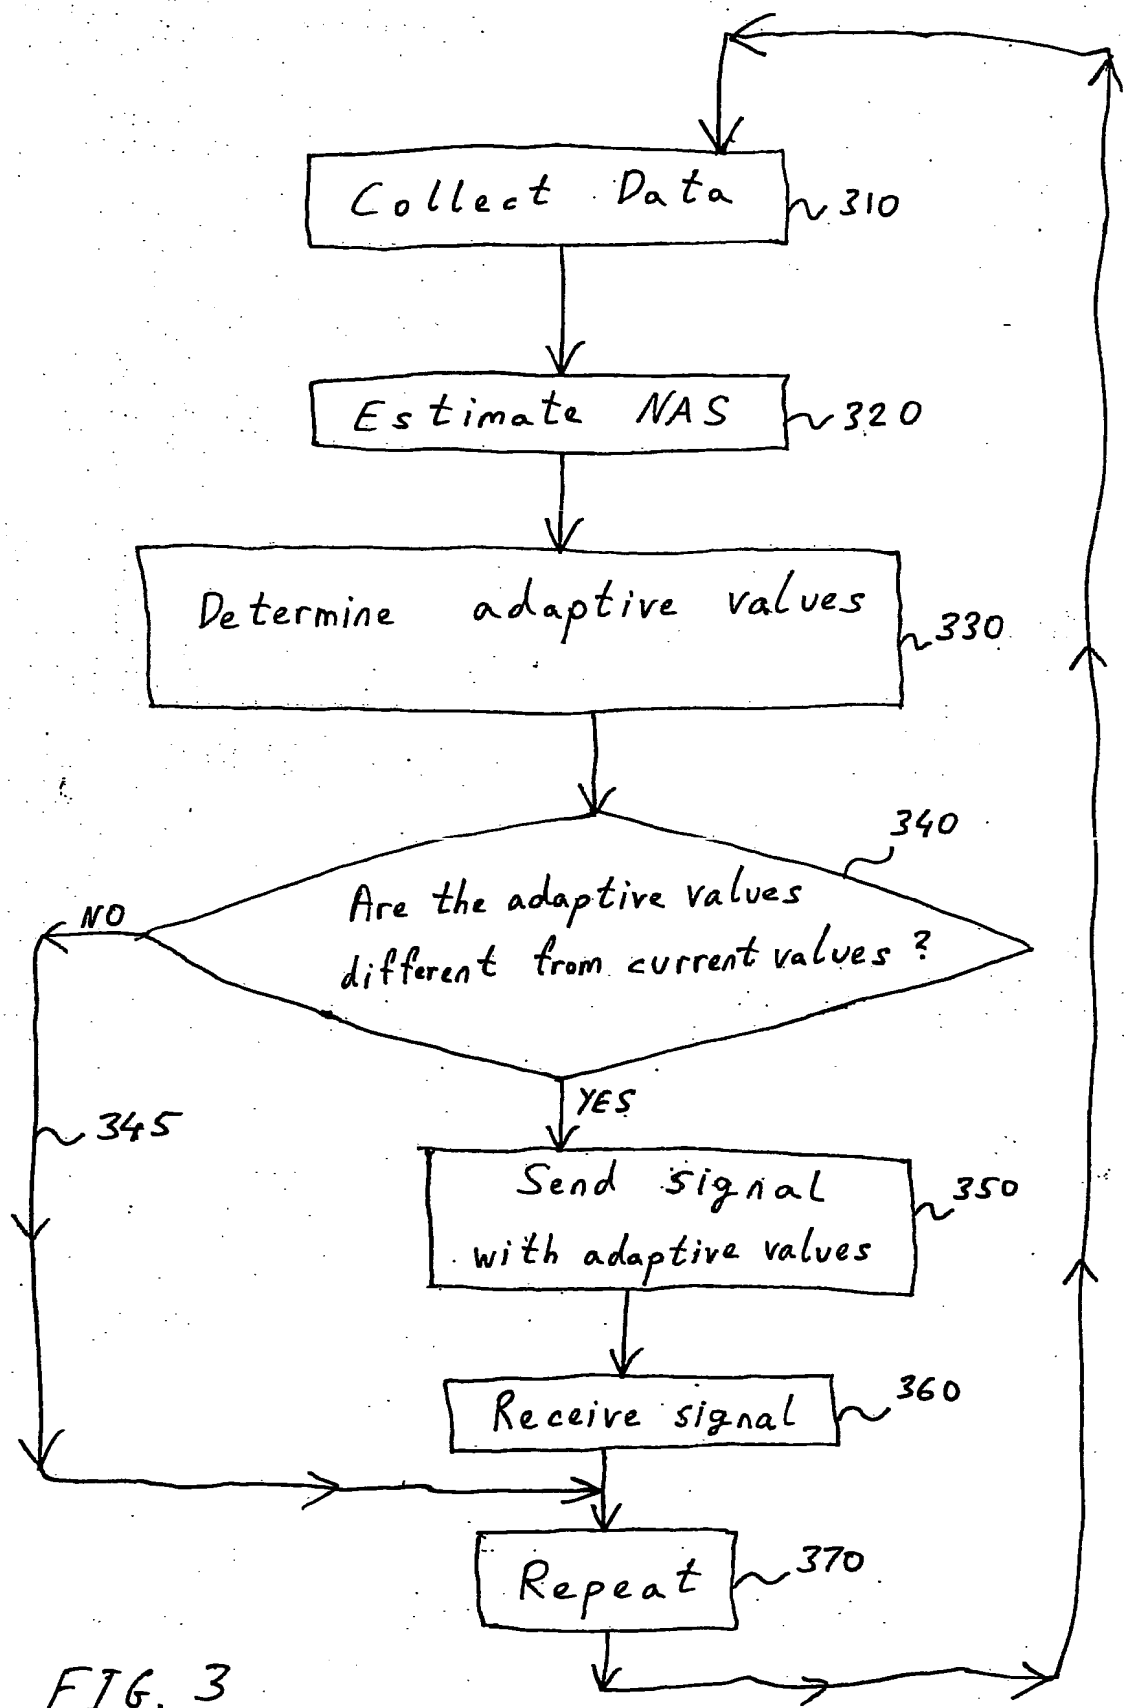 Collect Data
310
Estimate NAS
320
Determine adaptive values
330
340
Are the adaptive values
different from current values ?
NO
YES
345
Send signal
with adaptive values
350
Receive signal
360
Repeat
370
FIG. 3